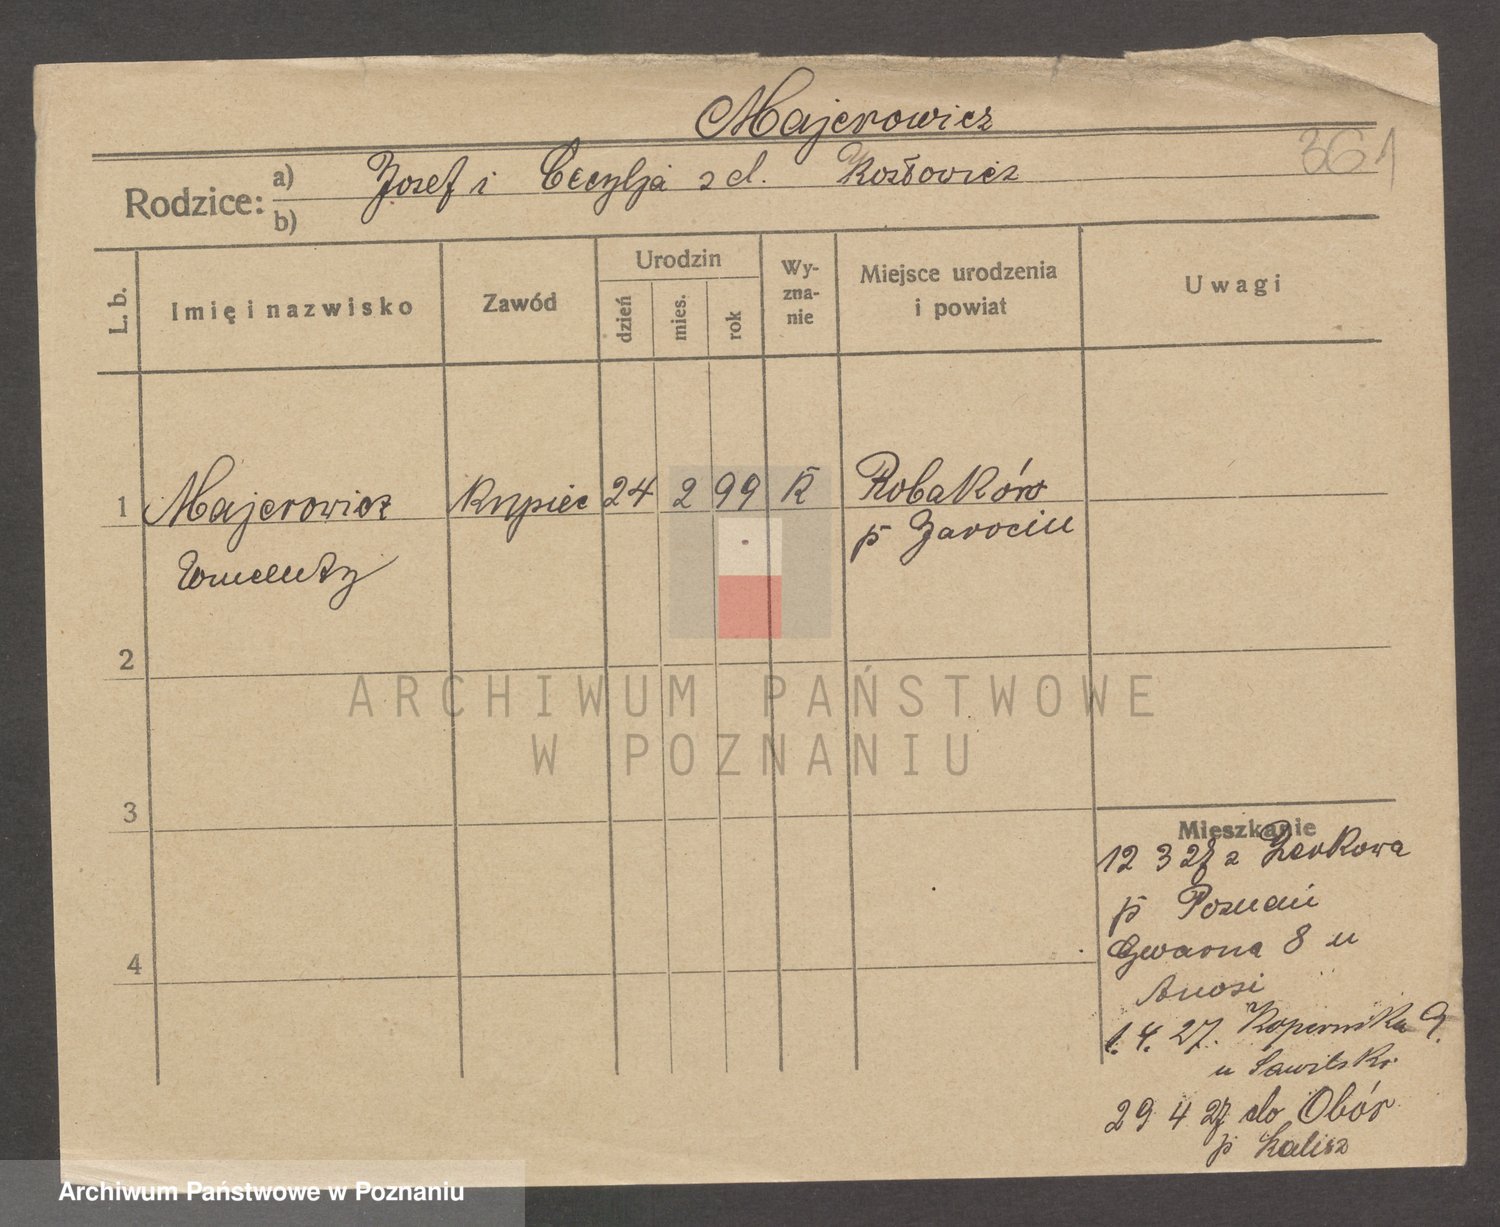 Majerowicz
361
Rodzice: a) Józef i Cecylja z d. Kozłowicz
b)
L. b.
Imię i nazwisko
Zawód
Urodzin
dzień
mies.
rok
Wy-
zna-
nie
Miejsce urodzenia
i powiat
Uwagi
1 Majerowicz Kupiec 24 2 99 K Robaków
p Jarocin
2
3
4
Mieszkanie
12 3 27 z Żerkowa
p Poznań
Gwarna 8 u
1. 4. 27. Kopernika 9.
u
29 4 27 do Obór
p Kalisz
ARCHIWUM PAŃSTWOWE
W POZNANIU
Archiwum Państwowe w Poznaniu